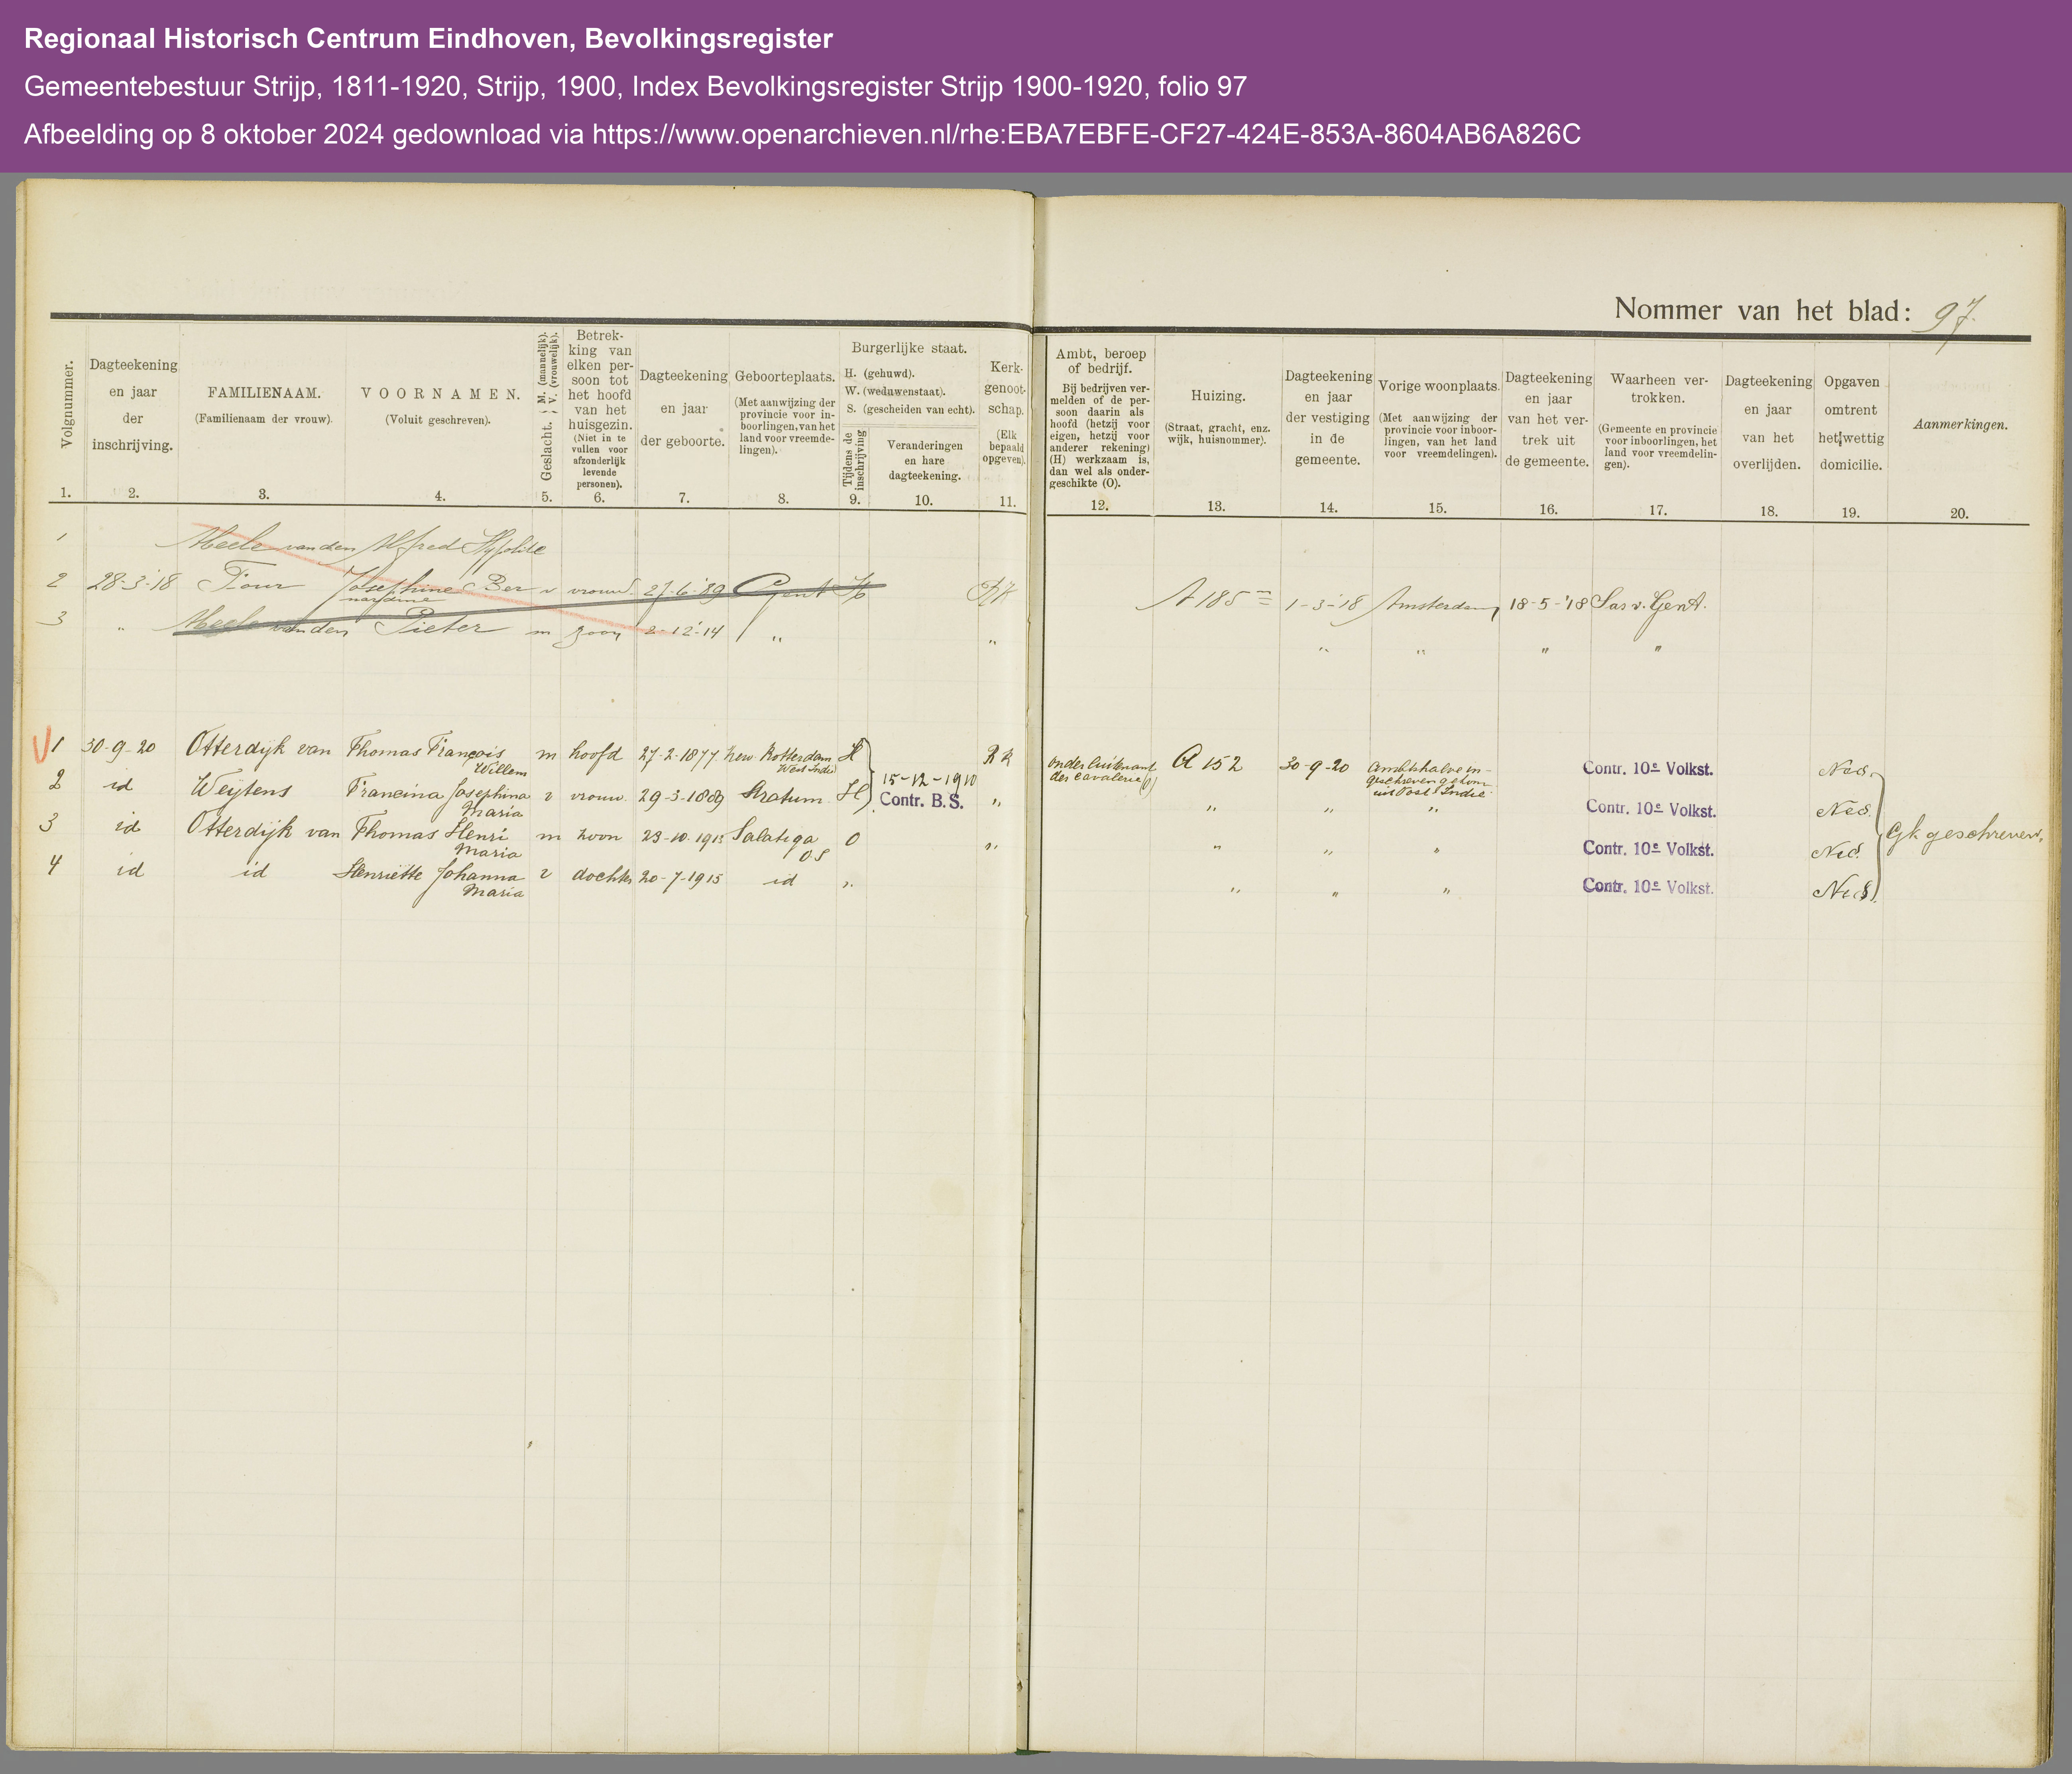 Regionaal Historisch Centrum Eindhoven, Bevolkingsregister
Gemeentebestuur Strijp, 1811-1920, Strijp, 1900, Index Bevolkingsregister Strijp 1900-1920, folio 97
Afbeelding op 8 oktober 2024 gedownload via https://www.openarchieven.nl/rhe:EBA7EBFE-CF27-424E-853A-8604AB6A826C
Nommer van het blad: 97
Volgnummer.
1.
Dagteekening
en jaar
der
inschrijving.
2.
FAMILIENAAM.
(Familienaam der vrouw).
3.
VOORNAMEN.
(Voluit geschreven).
4.
Geslacht. { M. (mannelijk). V. (vrouwelijk).
5.
Betrek-
king van
elken per-
soon tot
het hoofd
van het
huisgezin.
(Niet in te
vullen voor
afzonderlijk
levende
personen).
6.
Dagteekening
en jaar
der geboorte.
7.
Geboorteplaats.
(Met aanwijzing der
provincie voor in-
boorlingen, van het
land voor vreemde-
lingen).
8.
Burgerlijke staat.
H. (gehuwd).
W. (weduwenstaat).
S. (gescheiden van echt).
Tijdens de
inschrijving
9.
Veranderingen
en hare
dagteekening.
10.
Kerk-
genoot-
schap.
(Elk
bepaald
opgeven).
11.
Ambt, beroep
of bedrijf.
Bij bedrijven ver-
melden of de per-
soon daarin als
hoofd (hetzij voor
eigen, hetzij voor
anderer rekening)
(H) werkzaam is,
dan wel als onder-
geschikte (O).
12.
Huizing.
(Straat, gracht, enz.
wijk, huisnommer).
13.
Dagteekening
en jaar
der vestiging
in de
gemeente.
14.
Vorige woonplaats.
(Met aanwijzing der
provincie voor inboor-
lingen, van het land
voor vreemdelingen).
15.
Dagteekening
en jaar
van het ver-
trek uit
de gemeente.
16.
Waarheen ver-
trokken.
(Gemeente en provincie
voor inboorlingen, het
land voor vreemdelin-
gen).
17.
Dagteekening
en jaar
van het
overlijden.
18.
Opgaven
omtrent
het wettig
domicilie.
19.
Aanmerkingen.
20.
1 Abeele van den Alfred Hypolite
2 28-3-'18 Four Josephine Ber v vrouw 27-6-'89 Gent H RK A 185 1-3-'18 Amsterdam 18-5-'18 Sas v. Gent.
nardine
3 " Abeele van den Pieter m zoon 2-12-'14 " " " " " "
1 30-9-20 Otterdijk van Thomas François m hoofd 27-2-1877 New Rotterdam H RK Onderluitenant A 152 30-9-20 Ambtshalve in- Contr. 10e Volkst. Ned.
Willem West Indië der cavalerie (O) geschreven gekom.
uit Oost Indië
2 id Weijtens Francina Josephina v vrouw 29-3-1889 Stratum H 15-12-1910 " " " " Contr. 10e Volkst. Ned.
Maria Contr. B.S.
3 id Otterdijk van Thomas Henri m zoon 23-10-1913 Salatiga O " " " " Contr. 10e Volkst. Ned. geschreven
Maria O I
4 id id Henriëtte Johanna v dochter 20-7-1915 id " " " " Contr. 10e Volkst. Ned.
Maria